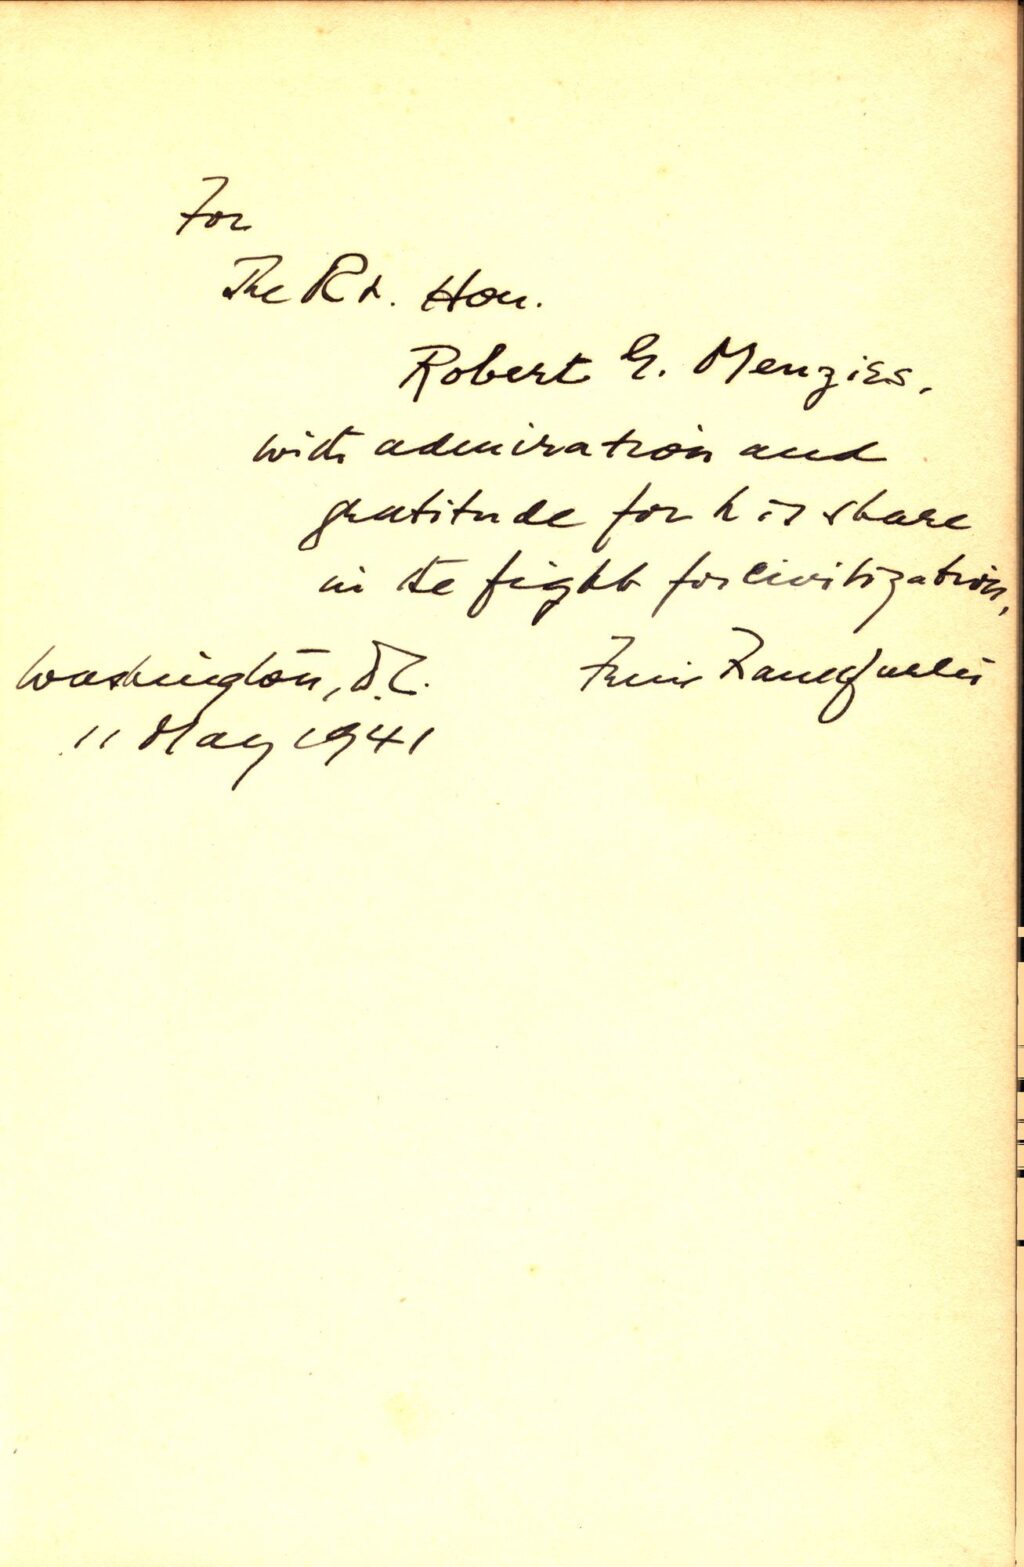 For
The Rt. Hon.
Robert G. Menzies,
with admiration and
gratitude for his share
in the fight for civilization,
Felix Frankfurter
Washington, D.C.
11 May 1941